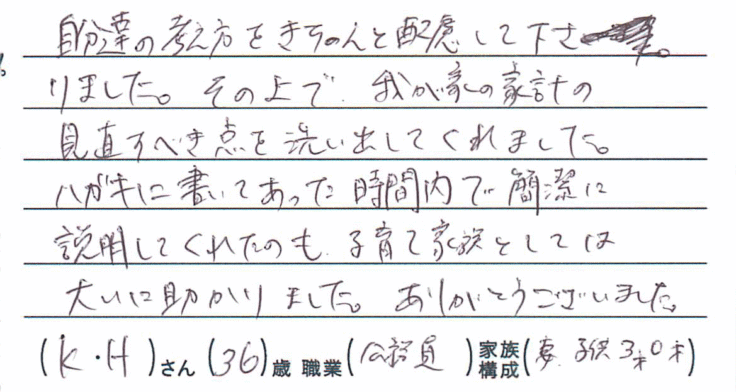 自分達の考え方をきちんと配慮して下さ
りました。その上で、我が家の家計の
見直すべき点を洗い出してくれました。
ハガキに書いてあった時間内で簡潔に
説明してくれたのも、子育て家族としては
大いに助かりました。ありがとうございました。
(K・H)さん (36)歳 職業(公務員)家族構成(妻 子供3才0才)